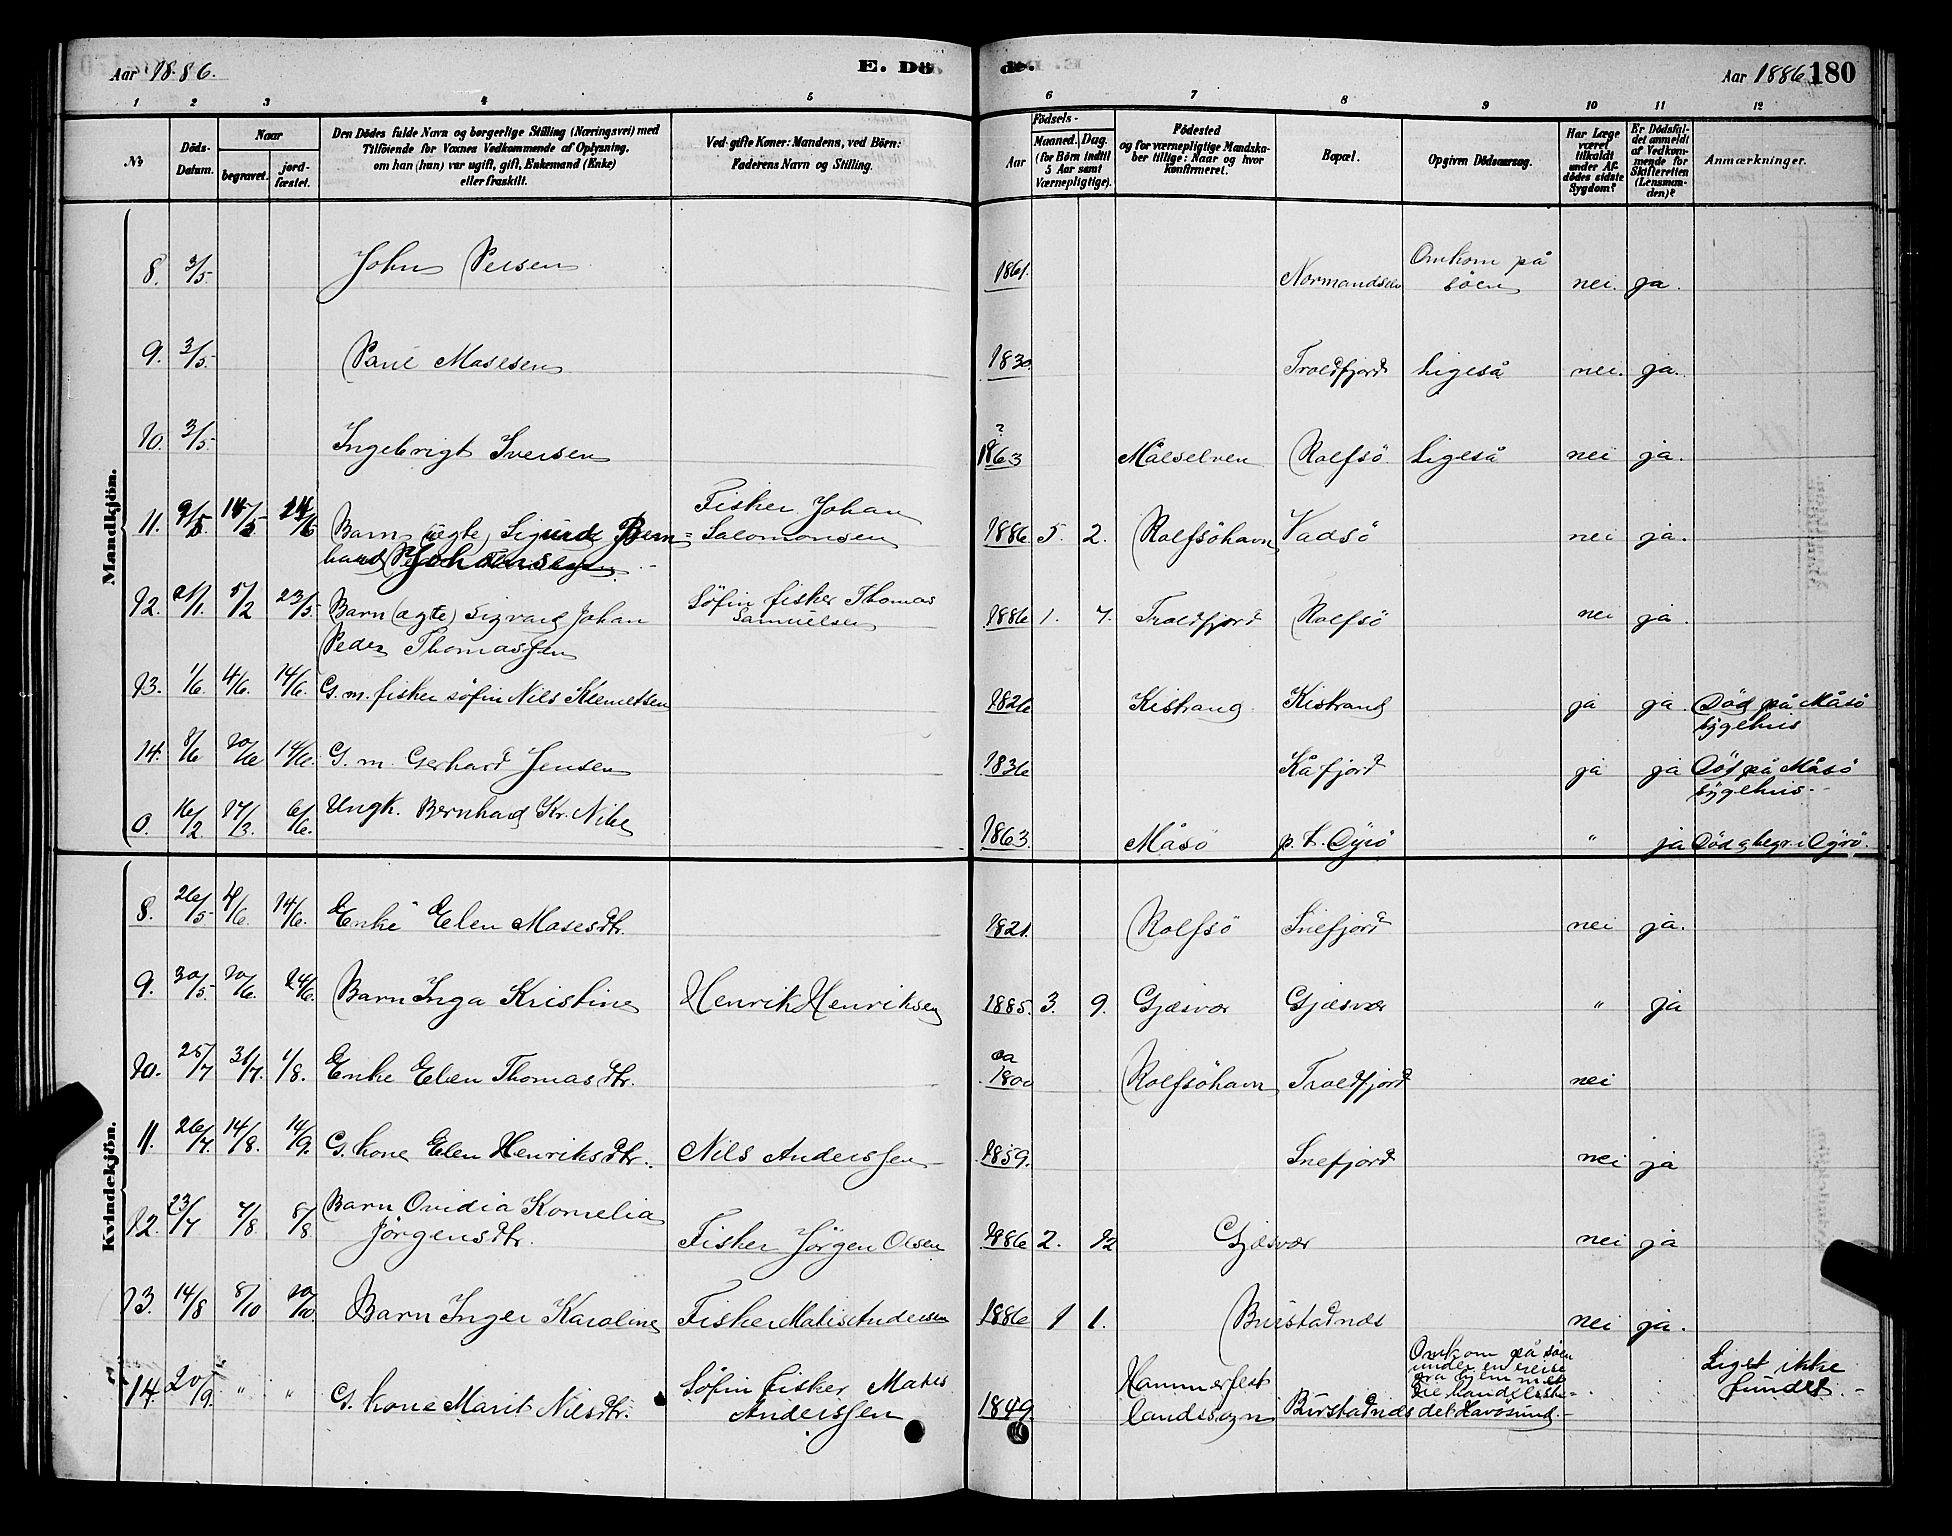 Aar 1886. E. Dö de. Aar 1886 180
1 2 3 4 5 6 7 8 9 10 11 12
No
Döds-Datum.
Naar
begravet.
jord-fæstet.
Den Dödes fulde Navn og borgerlige Stilling (Næringsvei) med
Tilföiende for Voxnes Vedkommende af Oplysning,
om han (hun) var ugift, gift, Enkemand (Enke)
eller fraskilt.
Ved gifte Koner: Mandens, ved Börn:
Faderens Navn og Stilling.
Födsels-
Aar
Maaned. Dag.
(for Börn indtil
5 Aar samt
Værnepligtige).
Födested
og for værnepligtige Mandska-
ber tillige: Naar og hvor
konfirmeret.
Bopæl.
Opgiven Dödsaarsag.
Har Læge
været
tilkaldt
under Af-
dödes sidste
Sygdom?
Er Dödsfal-
det anmeldt
af Vedkom-
mende for
Skifteretten
(Lensman-
den)?
Anmærkninger.
Mandkjön.
8. 3/5 John Persen 1861. Normandsen Omkom på söen nei. ja.
9. 3/5 Paul Masesen 1830. Troldfjord Ligeså nei. ja.
10. 3/5 Ingebrigt Iversen ? 1863 Målselven Rolfsö Ligeså nei ja.
11. 9/5 24/6 Barn (ægte) Sigurd Bern-
hard Johansen
Fisker Johan
Salomonsen 1886 5. 2. Rolfsöhavn Vadsö nei ja.
12. 21/1. 5/2 23/5. Barn (ægte) Sigvard Johan
Peder Thomassen
Söfin fisker Thomas
Samuelsen 1886 1. 7. Troldfjord Rolfsö nei ja.
13. 1/6. 4/6. 14/6. G. m. fisker söfin Nils Klemetsen 1826 Kistrand Kistrand ja ja. Död på Måsö
sygehus
14. 8/6 10/6 14/6. G. m. Gerhard Jensen 1836 Kåfjord ja ja Död på Måsö
sygehus.
0. 16/2. 17/3. 6/6. Ungk. Bernhard Kr. 1863 Måsö p. t. Gjesö " ja
Kvindekjön.
8. 26/5 4/6. 14/6. Enke Elen Masesdtr. 1821. Rolfsö Snefjord nei ja.
9. 30/5. 10/6. 14/6. Barn Inga Kristine Henrik Henriksen 1885. 3. 9. Gjæsvær Gjæsvær " ja
10. 25/7 31/7. 1/8. Enke Elen Thomasdtr. ca 1800 Rolfsöhavn Troldfjord nei
11. 26/7. 14/8. 14/9. G. kone Elen Henriksdtr. Nils Anderssen 1859. Snefjord nei ja
12. 23/7 7/8. 8/8. Barn Ovidia Kornelia
Jörgensdtr. Fisker Jörgen Olsen 1886 2. 12 Gjæsvær nei ja
13. 14/8 8/10 10/10. Barn Inger Karoline Fisker Matis Andersen 1886 1 1. Burstadnes nei ja.
14. 20/9. " " G. kone Marit Nilsdtr. Söfin fisker Mates
Anderssen 1849. Hammerfest
landssogn Burstadnes Omkom på söen
under en reise
fra hjemmet
til handelsste-
det Havösund. Liget ikke
fundet.